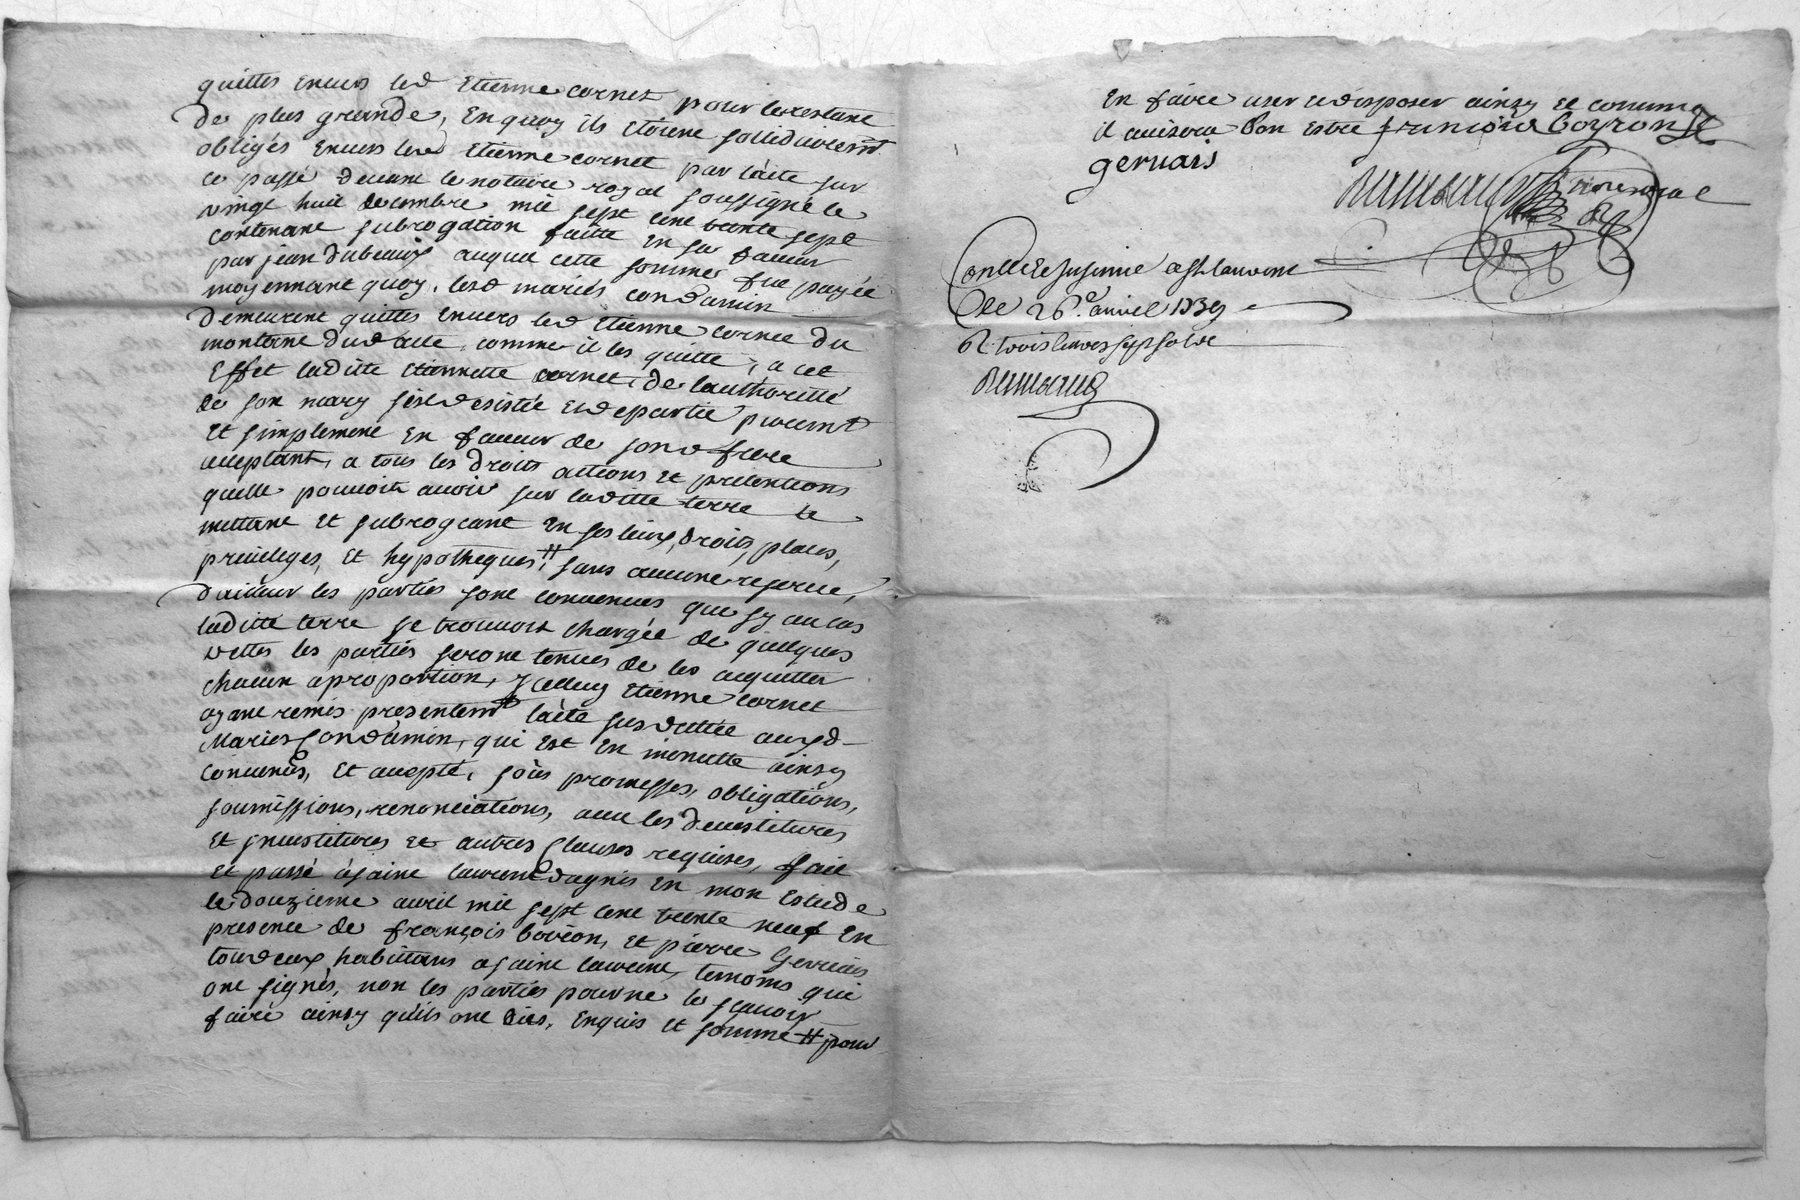 quittes envers led Etienne cornet pour lerestant
de plus grande, Enquoy ils étoient sollidairemt
obligés envers led Etienne cornet par l'acte sur
ce passé devant le notaire royal soussigné le
vingt huit decembre mil sept cent trente sept
contenant subrogation faitte En sa faveur
par jean dubeaux auquel cette somme fut payée
moyennant quoy, lesd mariés condamin
demeurent quittes envers led etienne cornet du
montant dud acte, comme il les quitte, a cet
Effet laditte etiennette cornet, de l'authoritté
de son mary s'est desistée et departie puremt
Et simplement En faveur de sond frere
acceptant, a tous les droits actions et pretentions
quelle pouvoit avoir sur laditte terre le
mettant Et subrogeant En ses lieux, droits, places,
privileges, Et hypotheques, # sans aucune reserve,
d'ailleur les parties sont convenues que sy au cas
laditte terre se trouvoit chargée de quelques
dettes les parties seront tenues de les acquitter
chacun aproportion, Icelluy Etienne Cornet
ayant remis presentemt l'acte susdatté auxd
Maries Condamin, qui Est En minutte ainsy
convenus, Et accepté, sous promesses, obligations,
soumissions, renonciations, avec les devestitures
Et investitures et autres Clauses requises, fait
et passé asaint laurent dagnis En mon Estude
le douzieme avril mil sept cent trente neuf En
presence de françois boiron, et pierre Gervais
tous deux habittans asaint laurent, temoins qui
ont signés, non les parties pour ne le scavoir
faire ainsy qu'ils ont dit, Enquis et sommé # pour
En faire user et disposer ainsy Et comme
il avisera bon Estre francois boyron
gervais
not royal
Conllé et Insinué a St laurent
le 26e. avril 1739
R trois livres sept sols